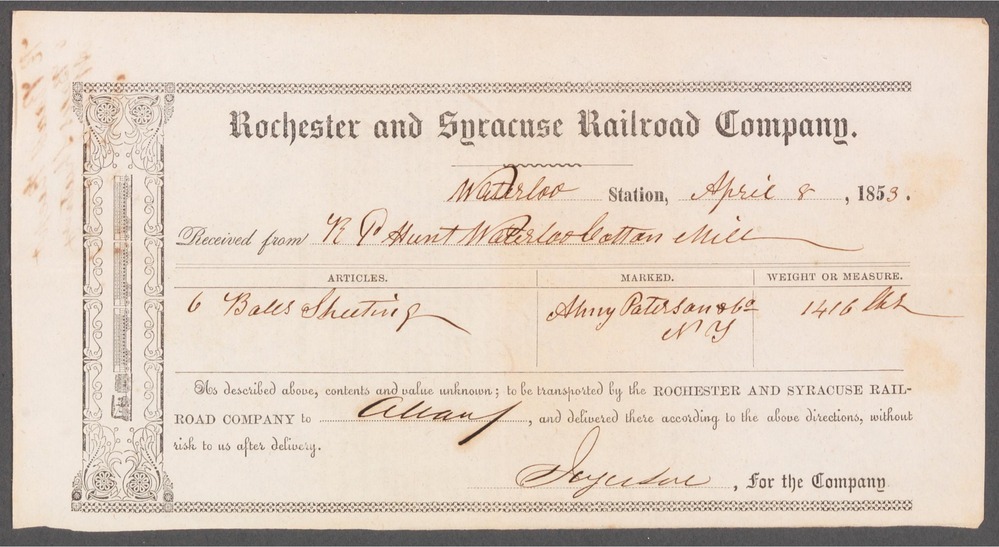 Rochester and Syracuse Railroad Company.
Waterloo Station, April 8, 1853.
Received from R P Hunt Waterloo Cotton Mill
ARTICLES. MARKED. WEIGHT OR MEASURE.
6 Bales Sheeting Almy Paterson & Co 1416 lbs
N Y
As described above, contents and value unknown; to be transported by the ROCHESTER AND SYRACUSE RAIL-
ROAD COMPANY to Albany, and delivered there according to the above directions, without
risk to us after delivery.
, For the Company